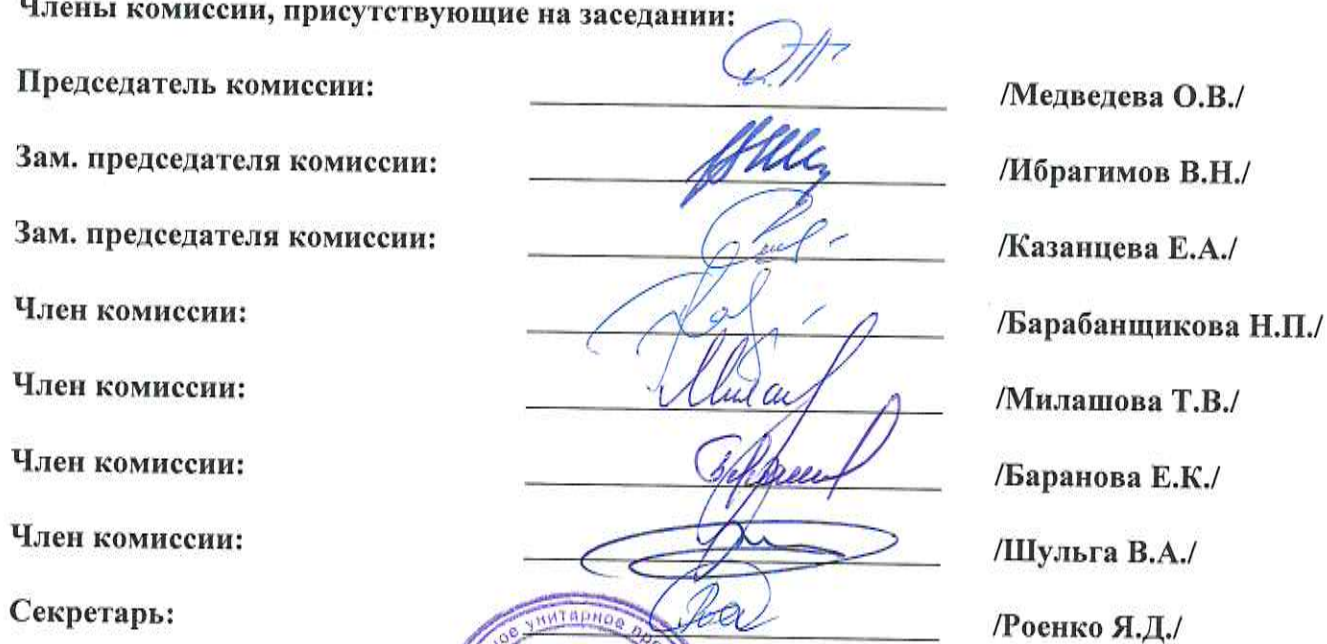 Члены комиссии, присутствующие на заседании:
Председатель комиссии: /Медведева О.В./
Зам. председателя комиссии: /Ибрагимов В.Н./
Зам. председателя комиссии: /Казанцева Е.А./
Член комиссии: /Барабанщикова Н.П./
Член комиссии: /Милашова Т.В./
Член комиссии: /Баранова Е.К./
Член комиссии: /Шульга В.А./
Секретарь: /Роенко Я.Д./
унитарное